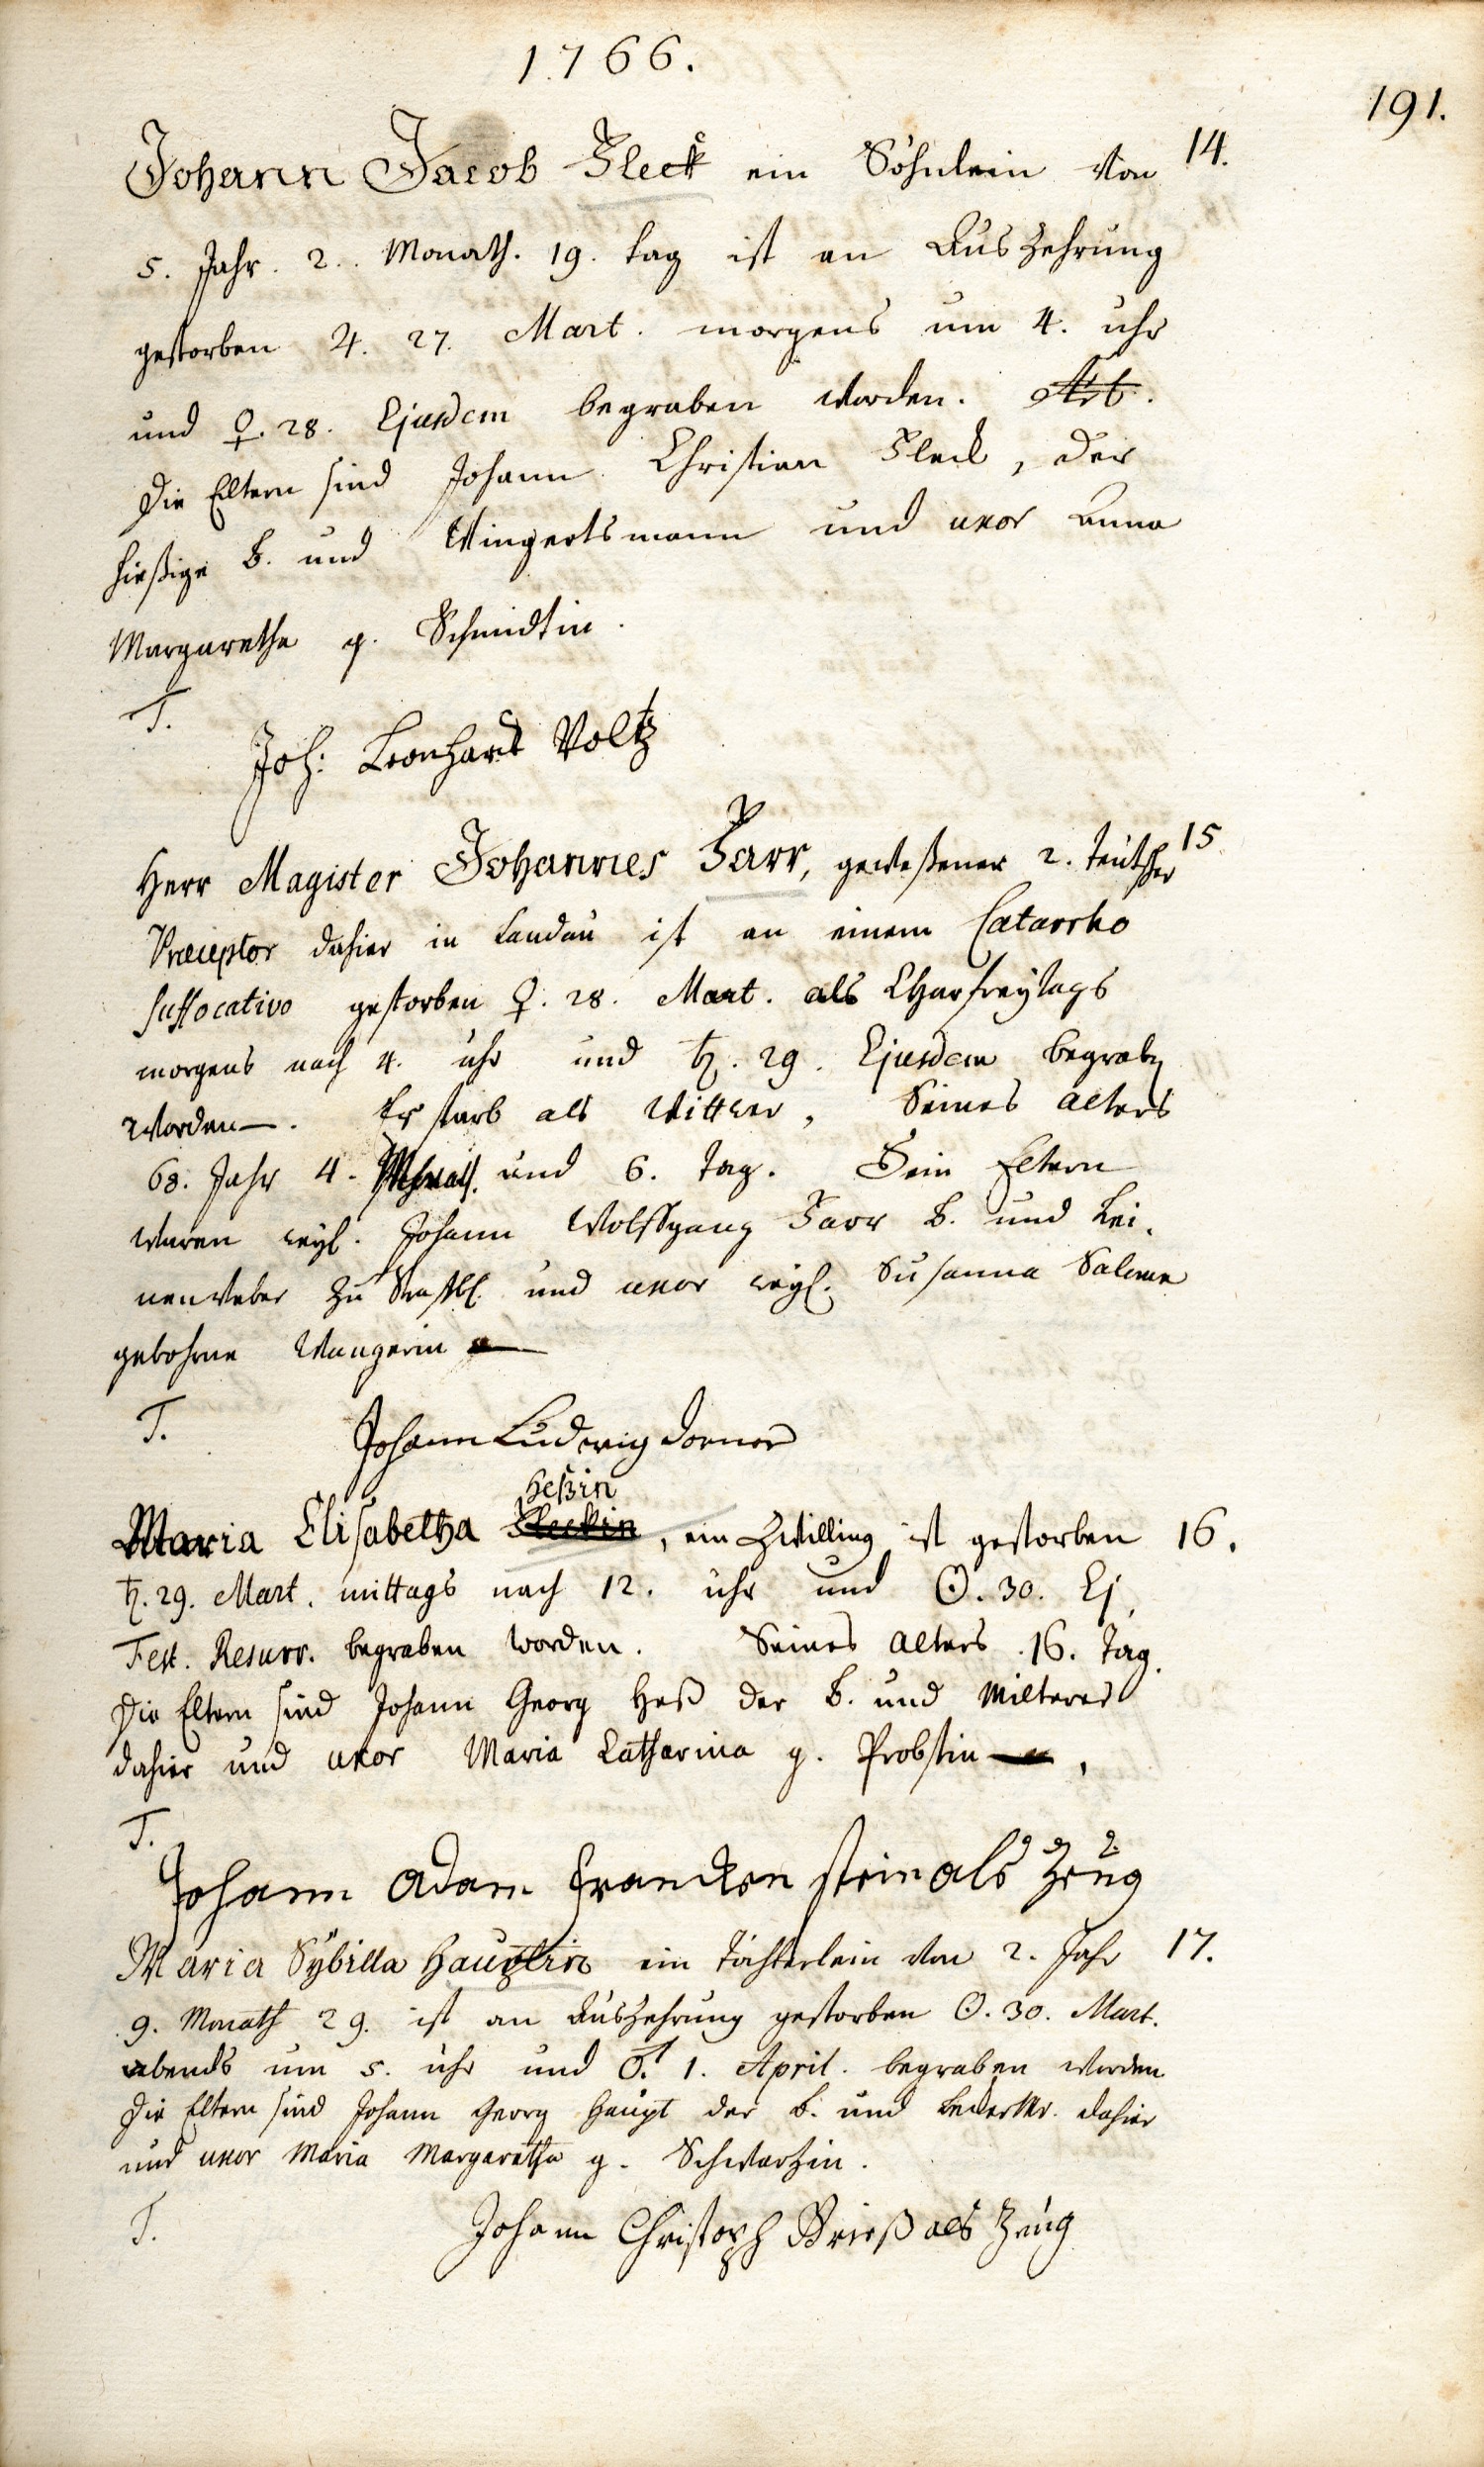 1766.
191.
Johann Jacob Fleck ein Söhnlein von 14.
5. Jahr. 2. Monath. 19. tag ist an Auszehrung
gestorben ♃. 27. Mart. morgens um 4. uhr
und ♀. 28. Ejusdem begraben worden.
Die Eltern sind Johann Christian Fleck, der
hießige B. und Wingertsmann und uxor Anna
Margaretha g. Schmidtin.
T.
Joh: Leonhard Voltz
Herr Magister Johannes Farr, geweßener 2. teutscher 15
Præceptor dahier in Landau ist an einem Catarrho
suffocativo gestorben ♀. 28. Mart. als Charfreytags
morgens nach 4. uhr und ♄. 29. Ejusdem begraben
worden. Er starb als Wittwer, Seines alters
68. Jahr 4. Monath. und 6. tag. Sein Eltern
waren weyl. Johann Wolffgang Farr B. und Lei-
nenweber zu Straßb. und uxor weyl. Susanna Salome
gebohrne Wangerin
T.
Johann Ludwig Dorner
Heßin
Maria Elisabetha Fleckin, ein Zwilling ist gestorben 16.
♄. 29. Mart. mittags nach 12. uhr und ☉. 30. Ej.
Fest. Resurr. begraben worden. Seines alters 16. tag.
Die Eltern sind Johann Georg Heß der B. und Milterer
dahier und uxor Maria Catharina g. Probstin
T.
Johann Adam Franckenstein als Zeug
Maria Sÿbilla Hauptin ein Töchterlein von 2. Jahr 17.
9. Monath 29. ist an Auszehrung gestorben ☉. 30. Mart.
abends um 5. uhr und ♂. 1. April. begraben worden
Die Eltern sind Johann Georg Haupt der B. und dahier
und uxor Maria Margaretha g. Schwartzin.
T.
Johann Christoph Brieß als Zeug